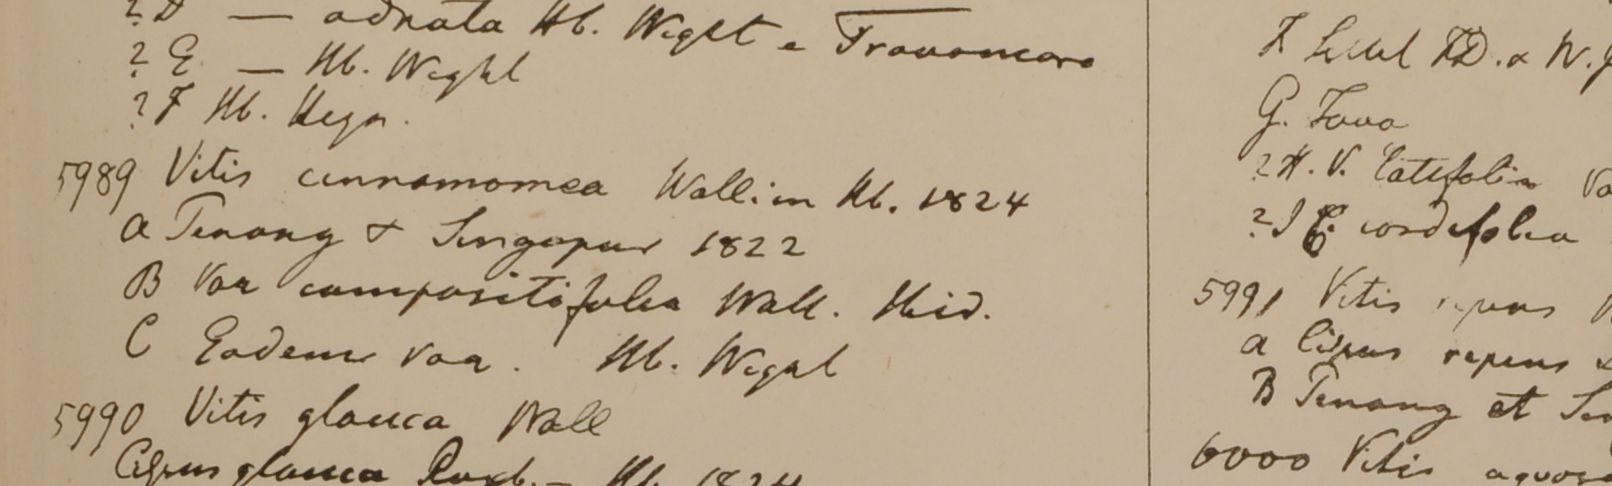 ? D — adnata Hb. Wight e Travancore
? E — Hb. Wight
? F Hb. Heyn.
5989 Vitis cinnamomea Wall. in Hb. 1824
a Penang & Singapur 1822
B Var compositifolia Wall. Hid.
C Eadem var. Hb. Wight
5990 Vitis glauca Wall
Cissus glauca Roxb. — Hb. 1824
F D. & W.
G. Java
? H. V. latifolia
? I C. cordifolia
5991 Vitis repens
a Cissus repens
B Penang et
6000 Vitis